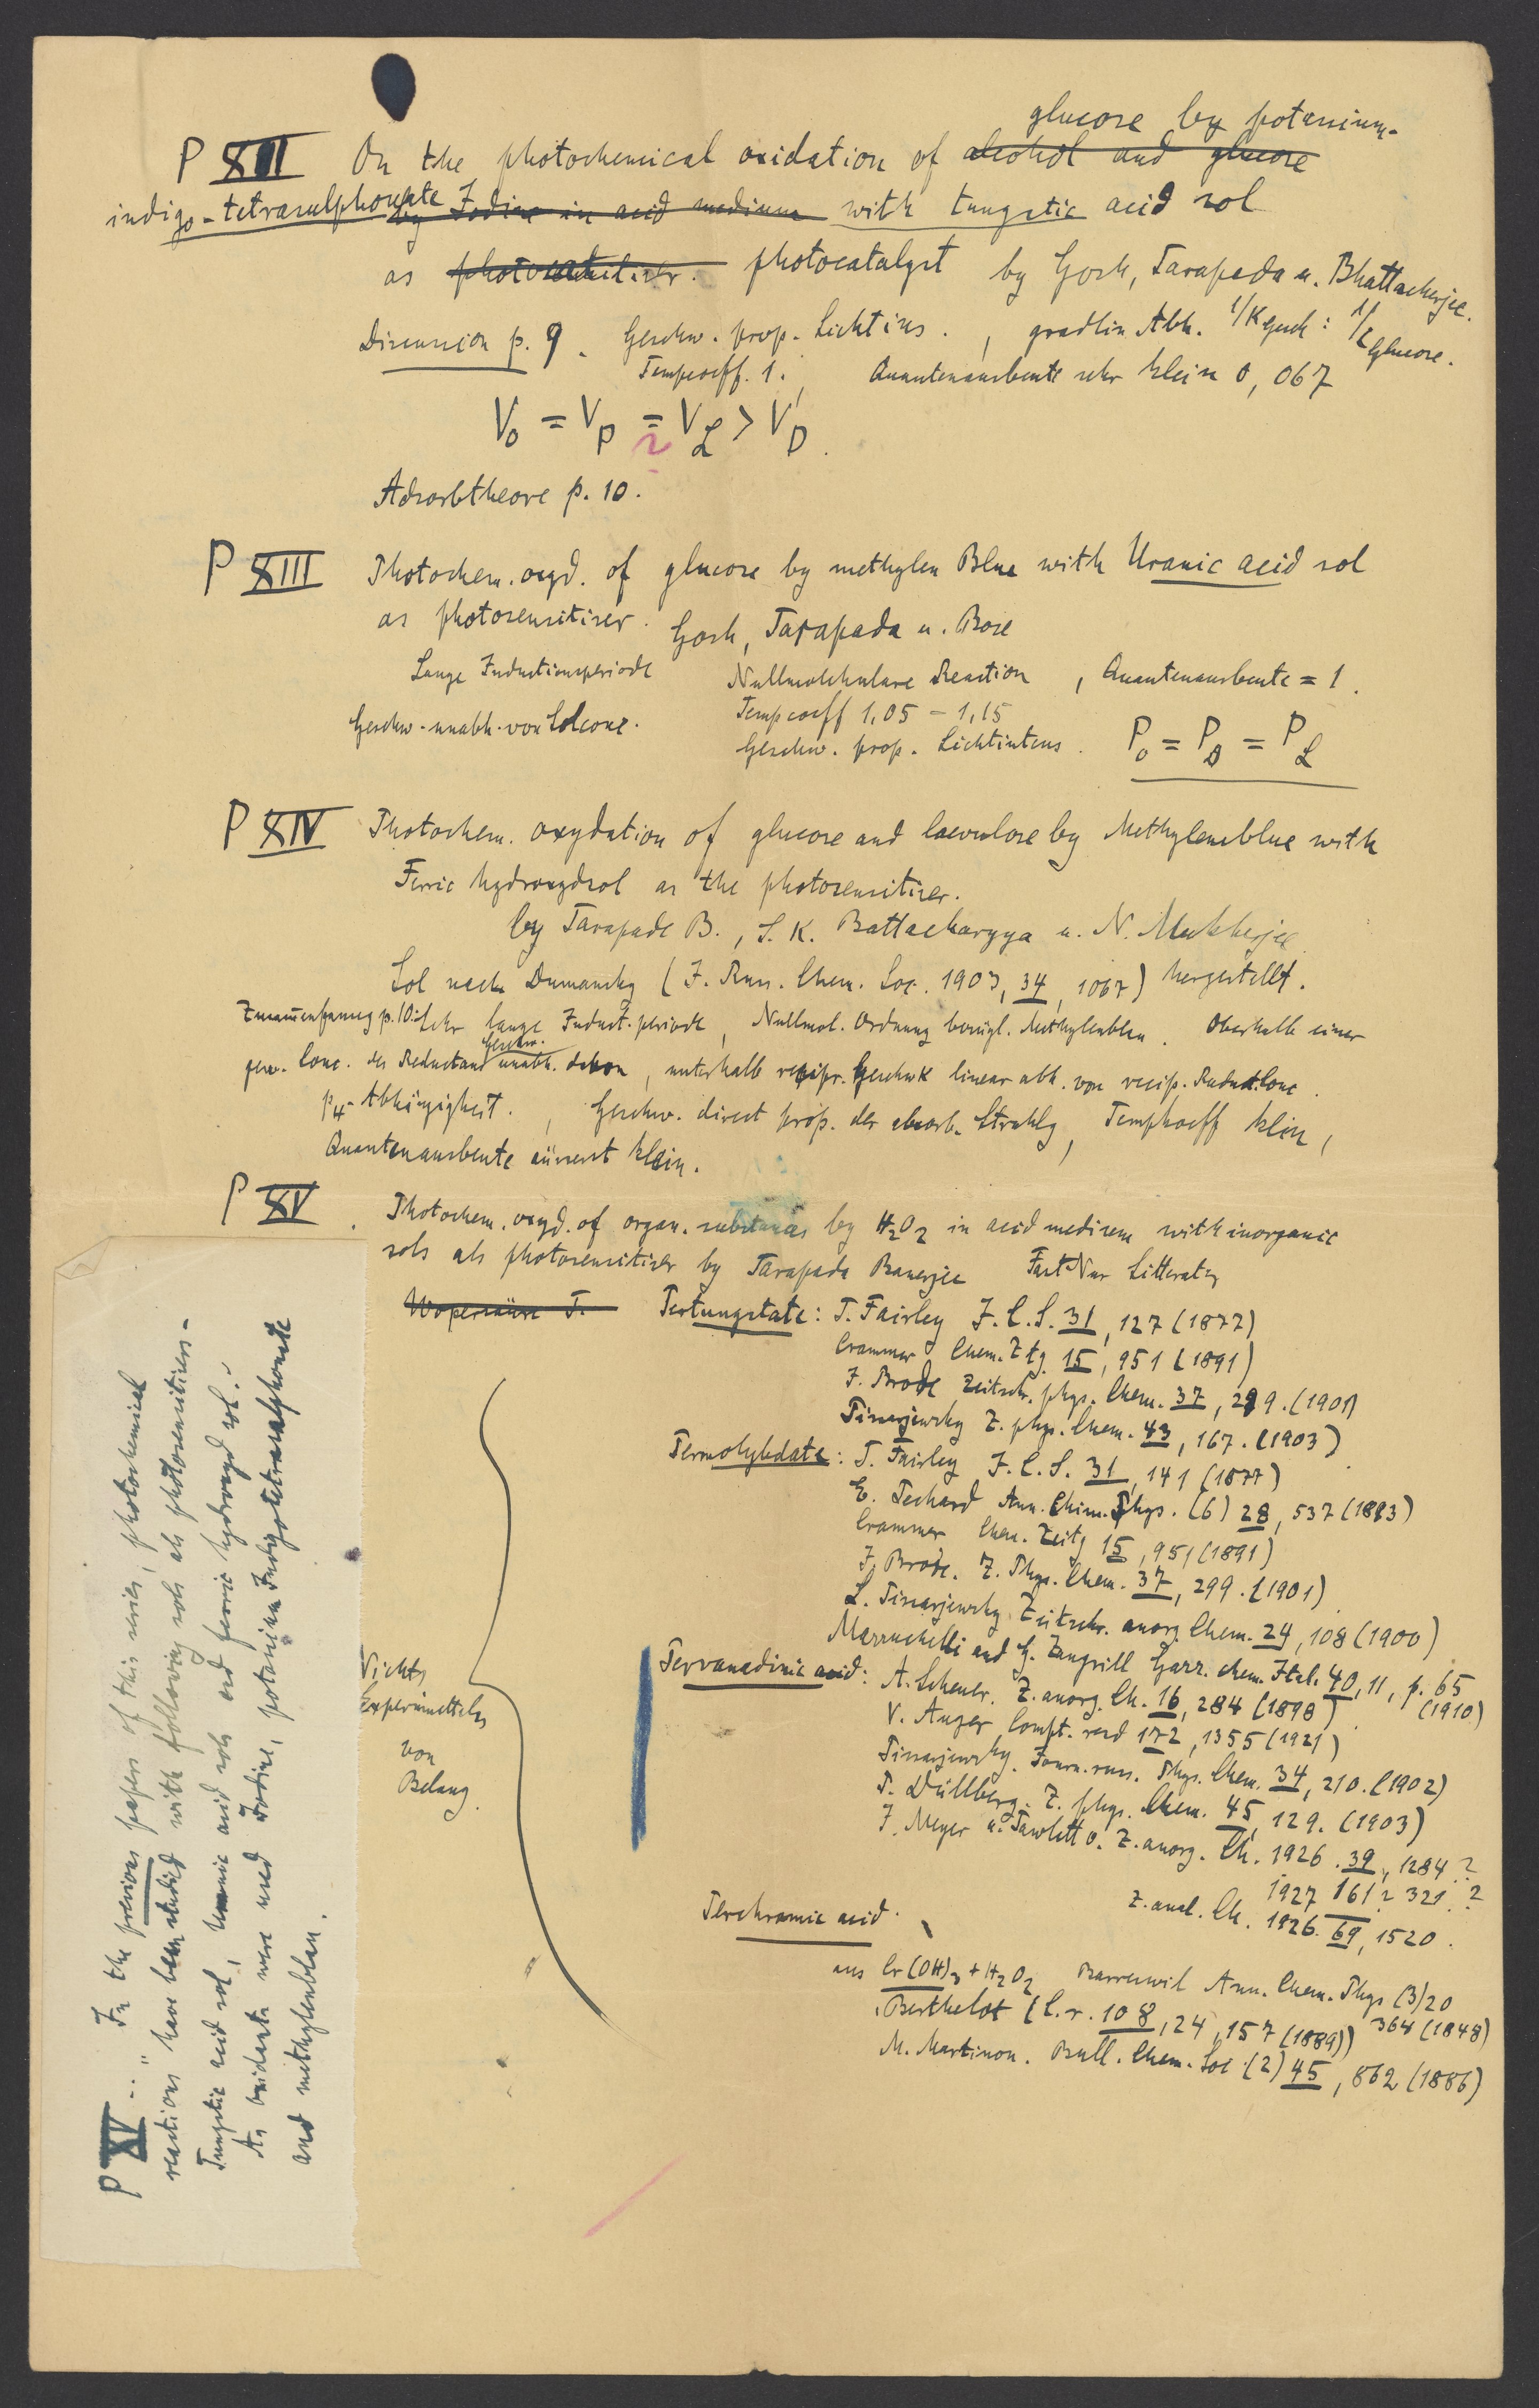 glucose by potassium-
P XII On the photochemical oxidation of alcohol and glucose
indigo-tetrasulphonate by Iodine in acid medium with tungstic acid sol
as photosensitiser. photocatalyst by Gosh, Tarapada u. Bhattacherjee.
Discussion p. 9. Geschw. prop. Lichtins. , gradlin Abh. 1/K gesch : 1/c glucose.
Tempcoeff. 1. , Quantenausbeute sehr klein 0,067
V0 = VD = VL > VD.
Adsorbtheore p. 10.
P XIII Photochem. oxyd. of glucose by methylen Blue with Uranic acid sol
as photosensitiser. Gosh, Tarapada u. Bose
Lange Inductionsperiode Nullmolekulare Reaction , Quantenausbeute = 1.
Geschw. unabh. von Solconc. Tempcoeff 1,05 – 1,15
Geschw. prop. Lichtintens. P0 = PD = PL
P XIV Photochem. oxydation of glucose and laevulose by Methyleneblue with
Ferric hydroxydsol as the photosensitiser.
by Tarapade B., S. K. Battacharyya u. N. Mukherjee
Sol nach Dumansky (J. Russ. Chem. Soc. 1903, 34, 1067) hergestellt.
Zusammenfassung p. 10: Sehr lange Induct. periode , Nullmol. Ordnung bezügl. Methylenblau . Oberhalb einer
Geschw.
gew. Conc. des Reductans unabh. davon , unterhalb recipr. GeschwK linear abh. von recip. Reduct. Conc.
pH-Abhängigkeit. , Geschw. direct prop. der absorb. Strahlg , Tempkoeff klein ,
Quantenausbeute äusserst klein.
P XV. Photochem. oxyd. of organ. substances by H2O2 in acid medium with inorganic
sols als photosensitiser by Tarapada Banerjee Fast Nur Litteratur
Pertungstate: T. Fairley J. C. S. 31, 127 (1877)
Crammer Chem. Ztg. 15, 951 (1891)
J. Brode Zeitschr. phys. Chem. 37, 299. (1901)
Pissarjewsky Z. phys. Chem. 43, 167. (1903)
Permolybdate: T. Fairley J. C. S. 31, 141 (1877)
E. Pechard Ann. Chim. Phys. (6) 28, 537 (1893)
Crammer Chem. Zeitg 15, 951 (1891)
J. Brode. Z. Phys. Chem. 37, 299. (1901)
L. Pissarjewsky Zeitschr. anorg. Chem. 24, 108 (1900)
Mazzuchelli and G. Zangrilli Gazz. chem. Ital. 40, 11, p. 65
(1910)
Pervanadinic acid: A. Scheuer. Z. anorg. Ch. 16, 284 (1898)
V. Auger Compt. rend 172, 1355 (1921)
Pissarjewsky. Journ. russ. Phys. Chem. 34, 210. (1902)
P. Düllberg. Z. phys. Chem. 45, 129. (1903)
J. Meyer u. Pawletta. Z. anorg. Ch. 1926. 39, 1284 ?
1927 161 ? 321. ?
Z. anal. Ch. 1926. 69, 1520.
Perchromic acid.
aus Cr(OH)3 + H2O2 Barreswil Ann. Chem. Phys (3) 20
364 (1848)
Berthelot (C. r. 108, 24, 157 (1889))
M. Martinon. Bull. Chem. Soc. (2) 45, 862 (1886)
Nichts
Experimentelles
von
Belang.
P XV .. " In the previous papers of this series, photochemical
reactions have been studied with following sols als photosensitisers-
Tungstic acid sol, Uranic acid sols and ferric hydroxyd sol. -
As oxidants were used Iodine, potassium Indigotetrasulphonate
and methylenblau.